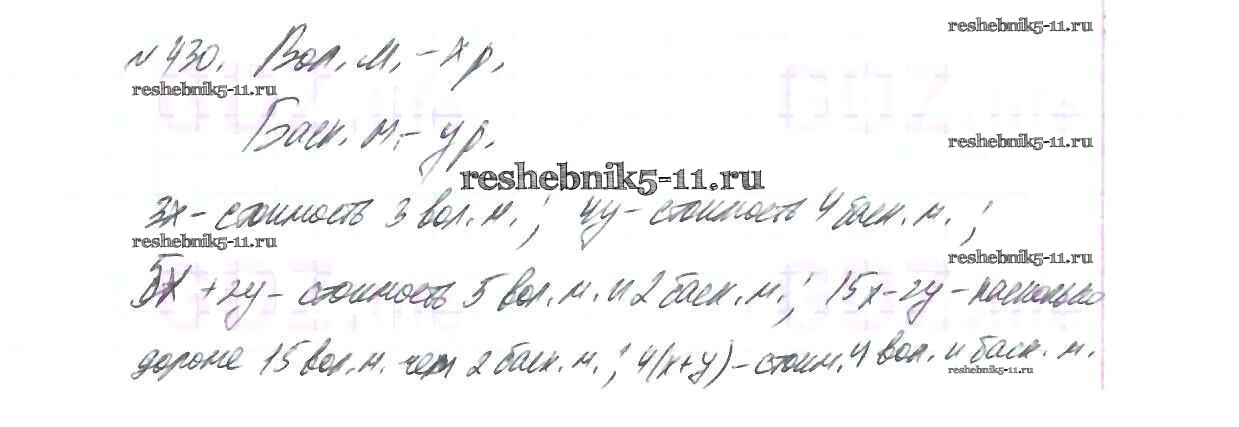 reshebnik5-11.ru
№430. Вол. м. – х р.
reshebnik5-11.ru
Баск. м – у р.
reshebnik5-11.ru
reshebnik5-11.ru
3х – стоимость 3 вол. м. ; 4у – стоимость 4 баск. м. ;
reshebnik5-11.ru
reshebnik5-11.ru
5х + 2у – стоимость 5 вол. м. и 2 баск. м. ; 15х – 2у – насколько
дороже 15 вол. м. чем 2 баск. м. ; 4(х+у) – стоим. 4 вол. и баск. м.
reshebnik5-11.ru